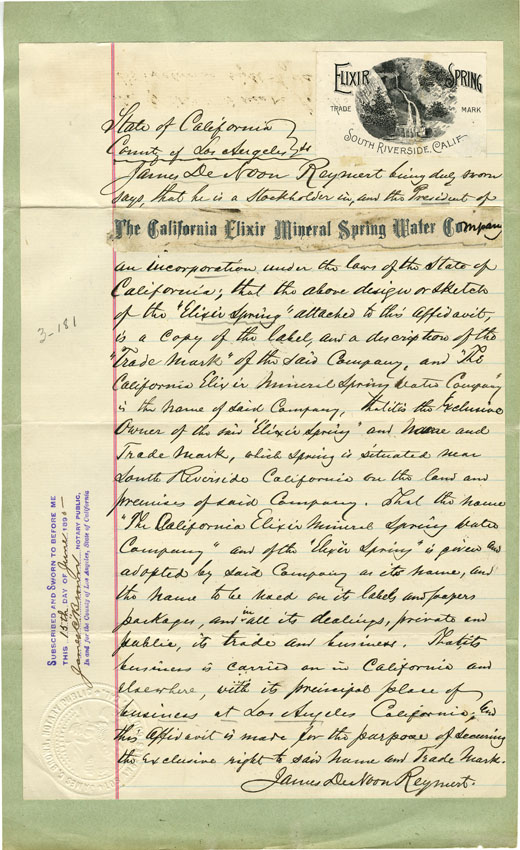 ELIXIR SPRING
TRADE MARK
SOUTH RIVERSIDE, CALIF.
State of California
County of Los Angeles } ss
James DeNoon Reymert being duly sworn
says, that he is a stockholder in, and the President of
The California Elixir Mineral Spring Water Company
an incorporation under the laws of the State of
California; that the above design or sketch
of the "Elixir Spring" attached to this affidavit,
is a copy of the label, and a description of the
"Trade Mark" of the said Company, and The
California Elixir Mineral Spring Water Company
is the name of said Company, that it is the Exclusive
Owner of the said "Elixir Spring" and Name and
Trade Mark, which Spring is situated near
South Riverside California on the land and
premises of said Company. That the name
"The California Elixir Mineral Spring Water
Company" and of the "Elixir Spring" is given and
adopted by said Company as its name, and
the name to be used on its labels and papers
packages, and in all its dealings, private and
public, its trade and business. That its
business is carried on in California and
elsewhere, with its principal place of
business at Los Angeles California, and
this Affidavit is made for the purpose of securing
the Exclusive right to said Name and Trade Mark.
James DeNoon Reymert.
3-181
SUBSCRIBED AND SWORN TO BEFORE ME
THIS 15th DAY OF June 189
NOTARY PUBLIC,
In and for the County of Los Angeles, State of California